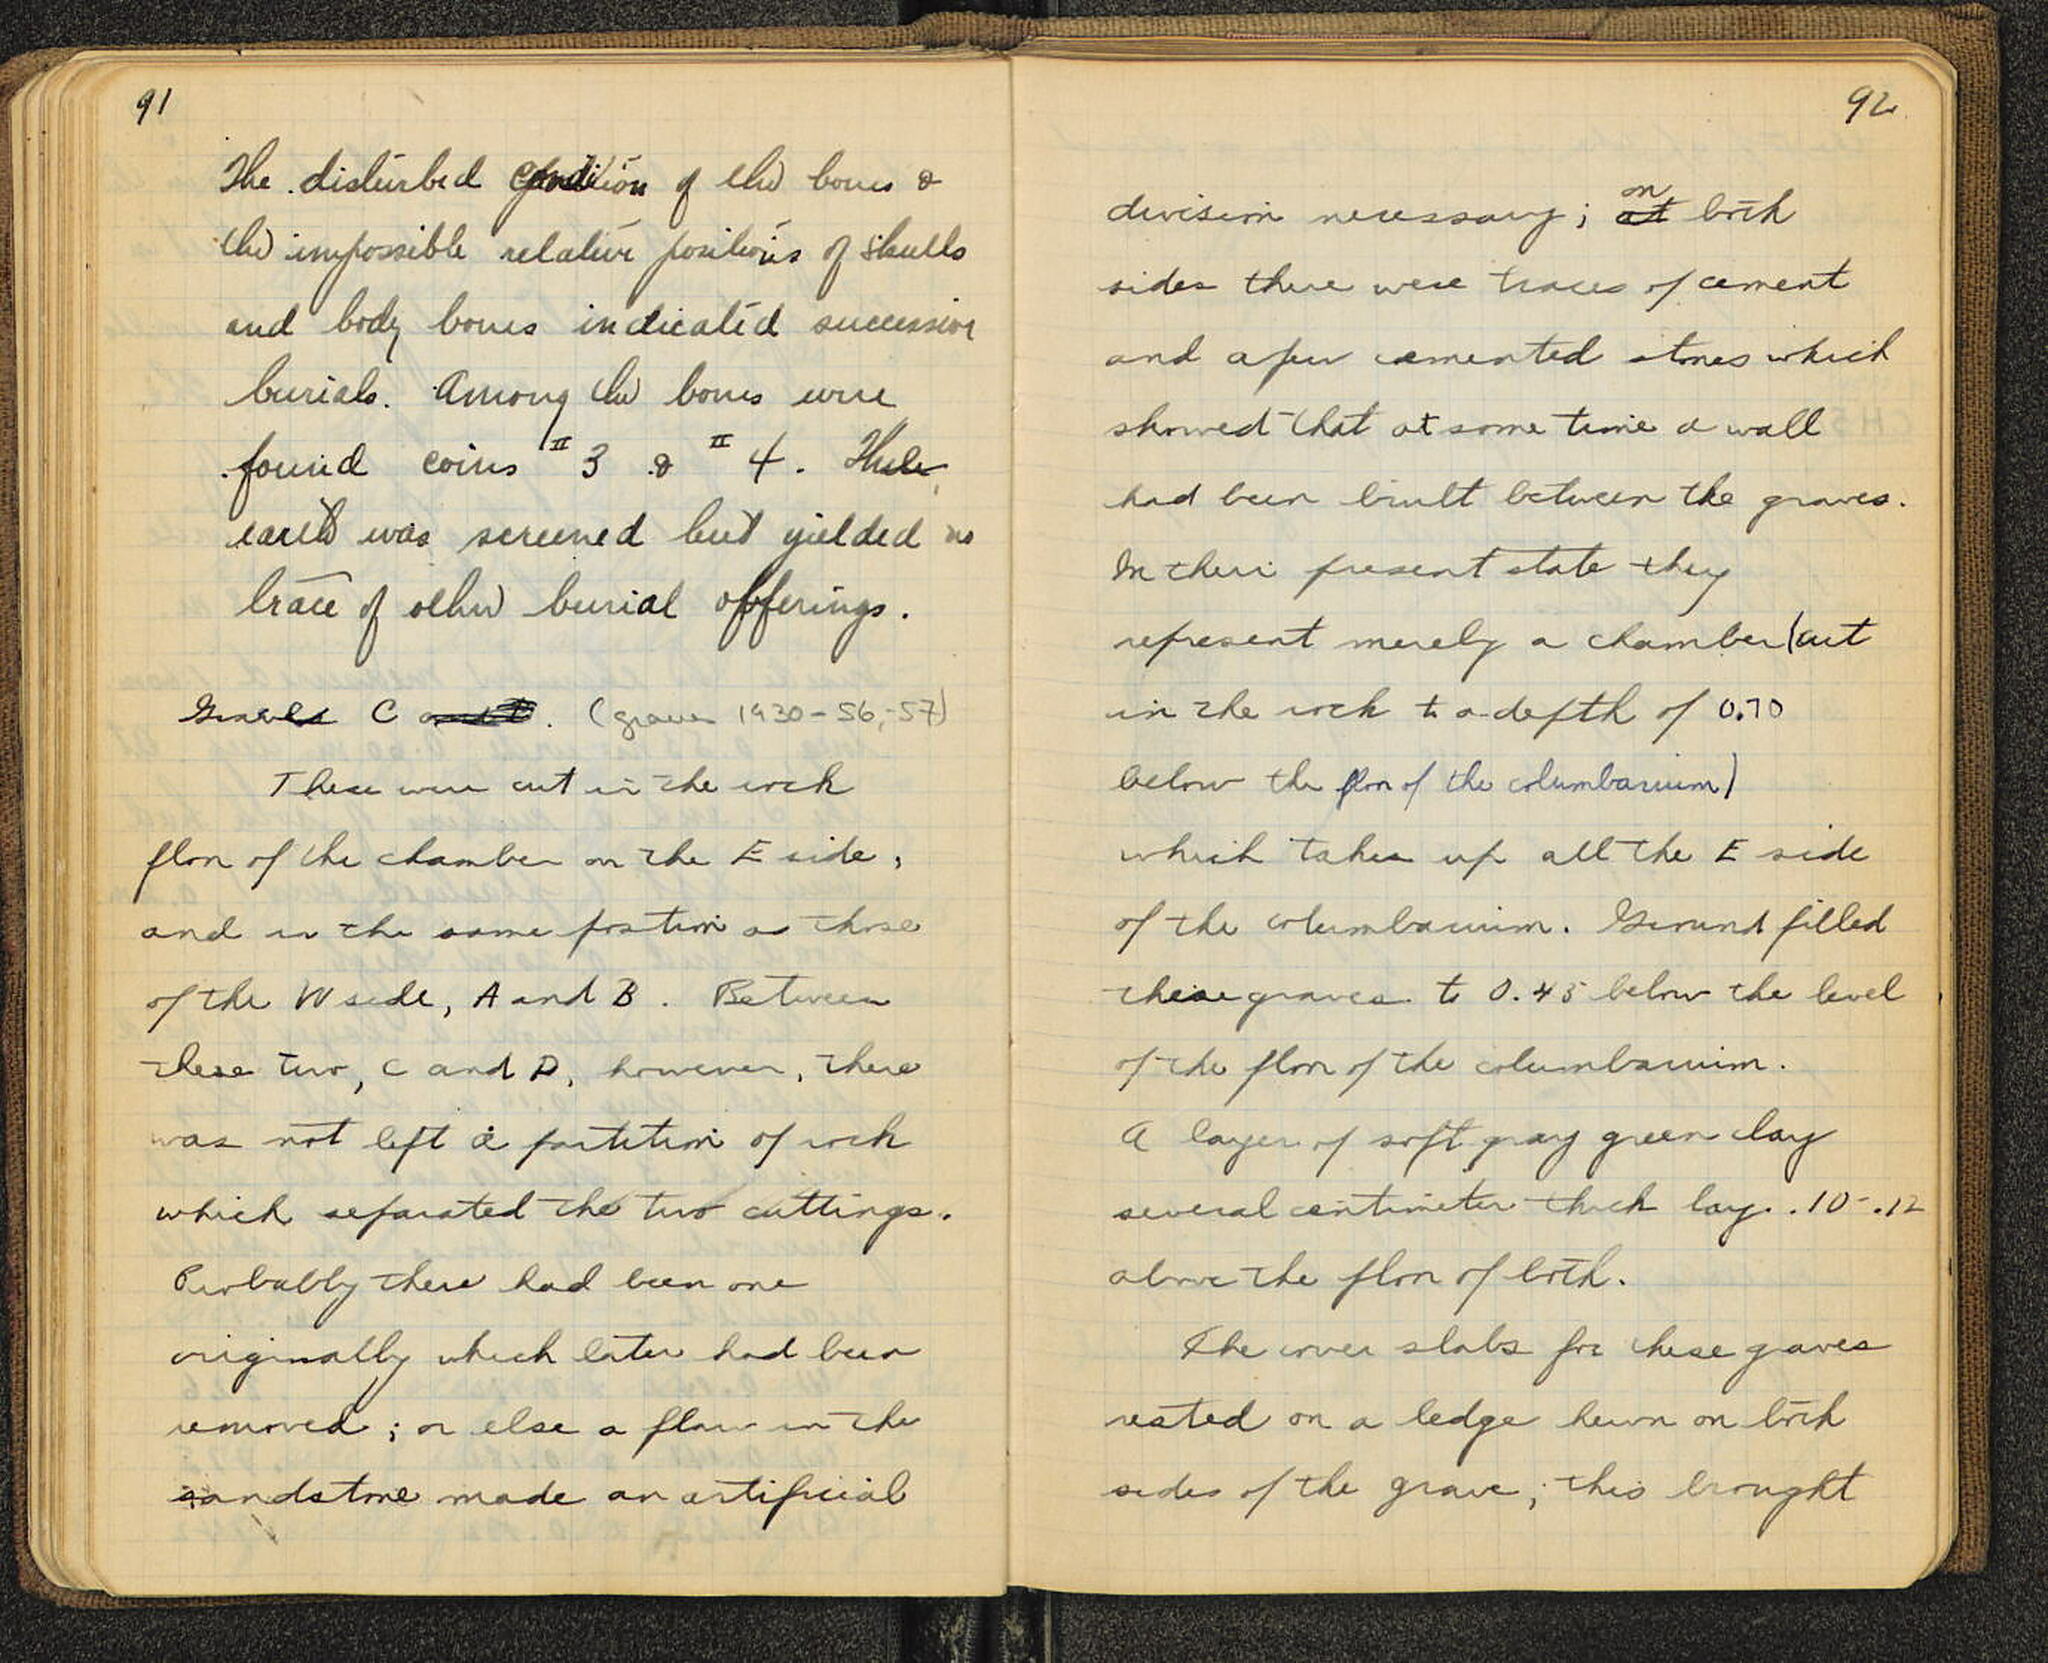 91
The disturbed condition of the bones &
the impossible relative positions of skulls
and body bones indicated succession
burials. Among the bones were
found coins # 3 & # 4. The
earth was screened but yielded no
trace of other burial offerings.
Graves C and D. (graves 1930-56,-57)
These were cut in the rock
floor of the chamber on the E side,
and in the same position as those
of the W side, A and B. Between
these two, C and D, however, there
was not left a partition of rock
which separated the two cuttings.
Probably there had been one
originally which later had been
removed; or else a flaw in the
sandstone made an artificial
92
division necessary; at on both
sides there were traces of cement
and a few cemented stones which
showed that at some time a wall
had been built between the graves.
In their present state they
represent merely a chamber (cut
in the rock to a depth of 0.70
below the floor of the columbarium)
which takes up all the E side
of the columbarium. Ground filled
these graves to 0.45 below the level
of the floor of the columbarium.
A layer of soft gray green clay
several centimeter thick lay .10-.12
above the floor of both.
The cover slabs for these graves
rested on a ledge hewn on both
sides of the grave; this brought